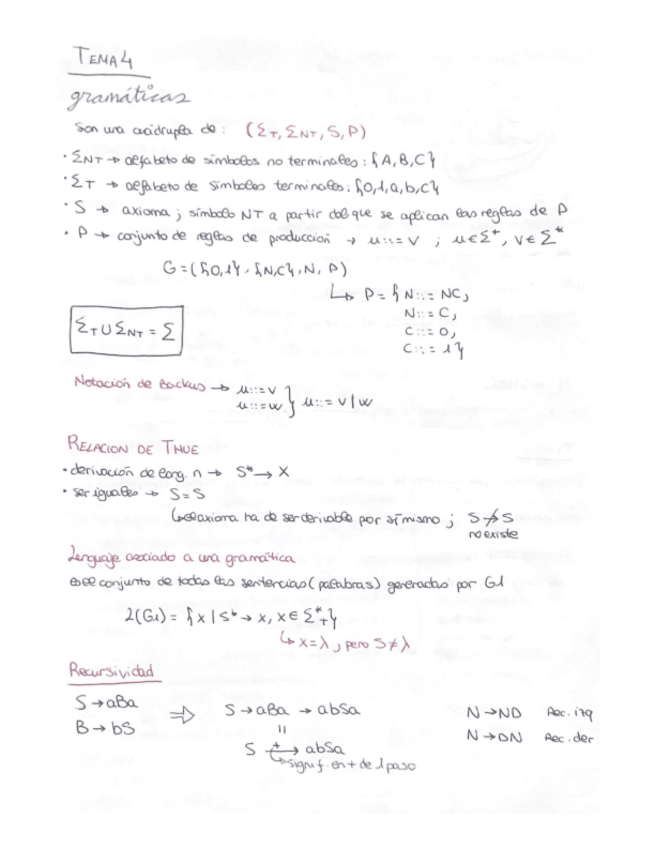 TEMA 4
gramáticas
Son una cuádrupla de : (ΣT, ΣNT, S, P)
· ΣNT → alfabeto de símbolos no terminales : {A, B, C}
· ΣT → alfabeto de símbolos terminales : {0, 1, a, b, c}
· S → axioma ; símbolo NT a partir del que se aplican las reglas de P
· P → conjunto de reglas de producción → u::=v ; u∈Σ⁺, v∈Σ*
G = ({0,1}, {N,C}, N, P)
↳ P = { N::= NC,
N::= C,
C::= 0,
C::= 1}
ΣT ∪ ΣNT = Σ
Notación de Backus → u::=v
u::=w } u::= v|w
RELACION DE THUE
· derivación de long. n → S* → X
· ser iguales → S = S
↳ el axioma ha de ser derivable por sí mismo ; S ↛ S
no existe
Lenguaje asociado a una gramática
es el conjunto de todas las sentencias (palabras) generadas por G
L(G) = {x | S* → x, x ∈ ΣT*}
↳ x = λ, pero S ≠ λ
Recursividad
S → aBa
B → bS
⇒ S → aBa → abSa
=
S +→ abSa
↳ signif. en + de 1 paso
N → ND Rec. izq
N → DN Rec. der